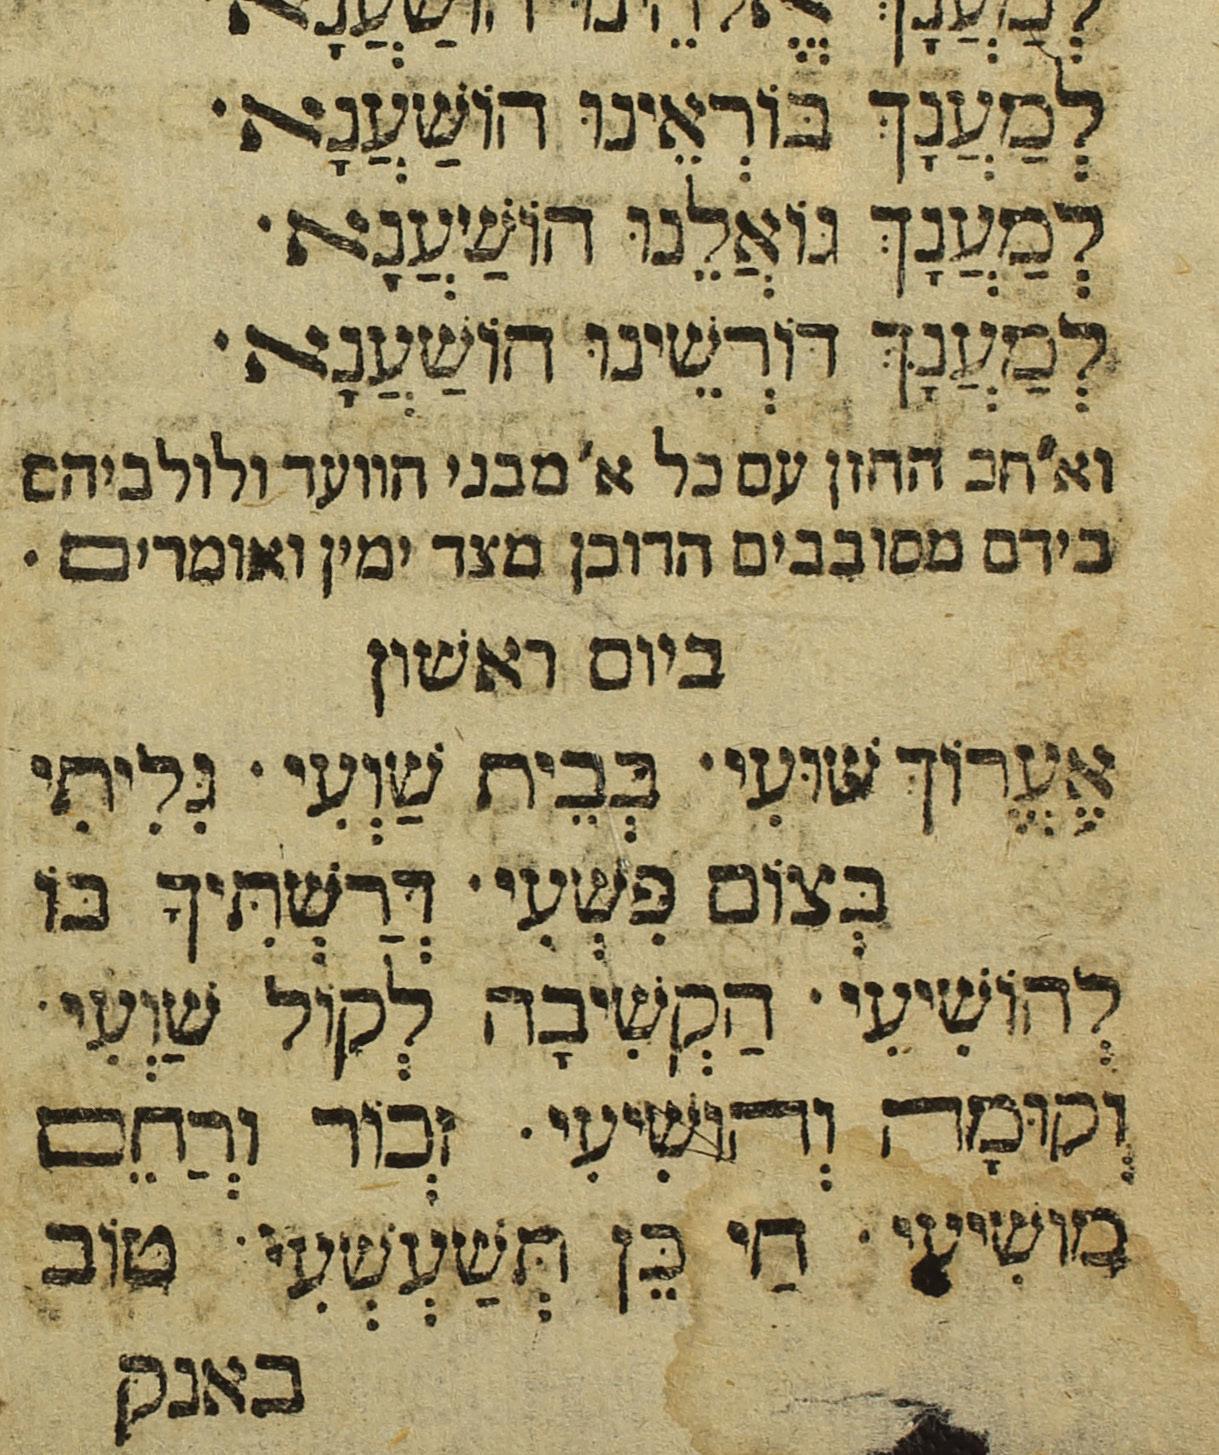 לְמַעֲנָךְ אֱלֹהֵינוּ הוֹשַׁעֲנָא
לְמַעֲנָךְ בּוֹרְאֵינוּ הוֹשַׁעֲנָא·
לְמַעֲנָךְ גּוֹאֲלֵנוּ הוֹשַׁיעֲנָא·
לְמַעֲנָךְ דּוֹרְשֵׁינוּ הוֹשַׁעֲנָא·
וא'חכ החזן עם כל א' מבני הוועד ולולביהם
בידם מסובבים הדוכן מצד ימין ואומרים·
ביום ראשון
אֶעֱרוֹךְ שׁוּעִי· בְּבֵית שַׁוְעִי· גִּלִיתִי
בְּצוֹם פִּשְׁעִי· דְּרַשְׁתִּיךָ בּוֹ
לְהוֹשִׁיעִי· הַקְשִׁיבָה לְקוֹל שַׁוְעִי·
וְקוּמָה וְהוֹשִׁיעִי· זְכוֹר וְרַחֵם
מוֹשִׁיעִי· חַי כֵּן תְּשַׁעְשְׁעִי· טוֹב
באנק